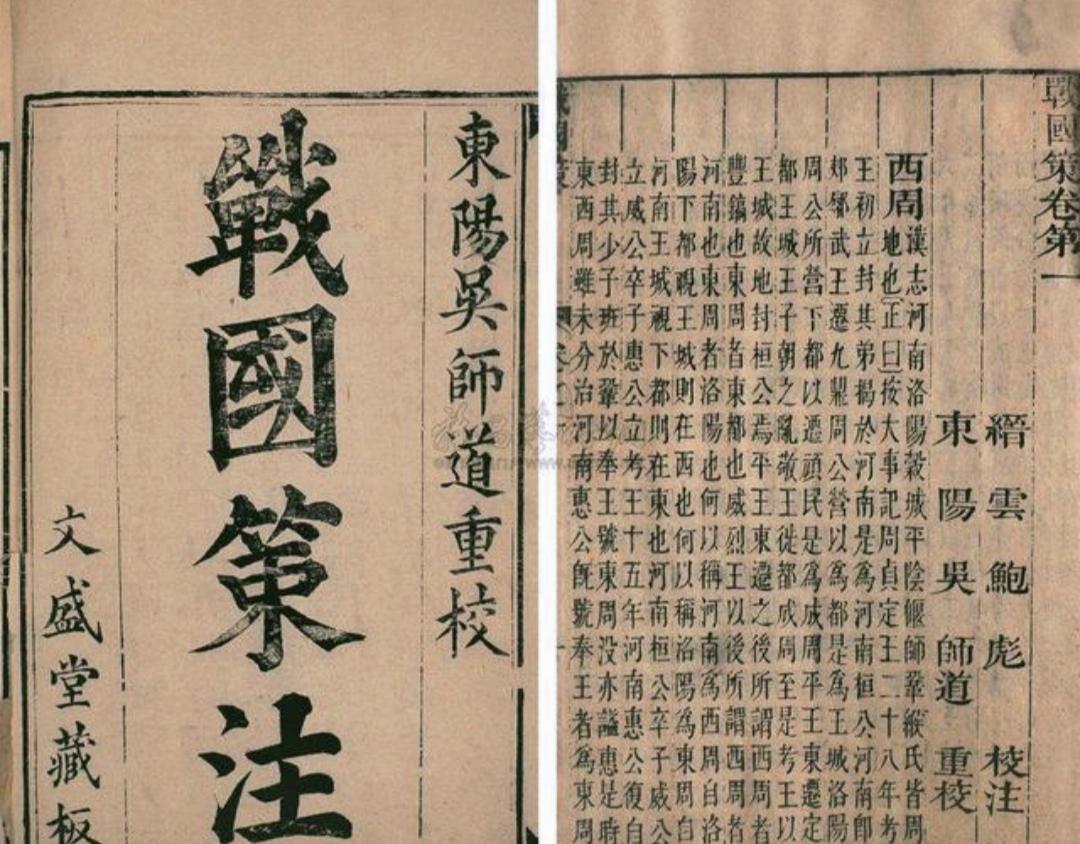 東陽吳師道重校
戰國策注
文盛堂藏板
戰國策卷第一
縉雲鮑彪校注
東陽吳師道重校
西周漢志河南洛陽穀城平陰偃師鞏緱氏皆周
地也正曰按大事記周貞定王二十八年考
王初立封其弟揭於河南是為河南桓公河南即
郟鄏武王遷九鼎周公營以為都是為王城洛陽
周公所營下都以遷頑民是為成周平王東遷定
都王城王子朝之亂敬王徙都成周至是考王以
王城故地封桓公焉平王東遷之後所謂西周者
豐鎬也東周者東都也威烈王以後所謂西周者
河南也東周者洛陽也何以稱河南為西周自洛
陽下都視王城則在西也何以稱洛陽為東周自
河南王城視下都則在東也河南桓公卒子威公
立威公卒子惠公立考王十五年河南惠公復自
封其少子班於鞏以奉王號東周没亦謚惠是時
東西周雖未分治河南惠公旣號奉王者為東周